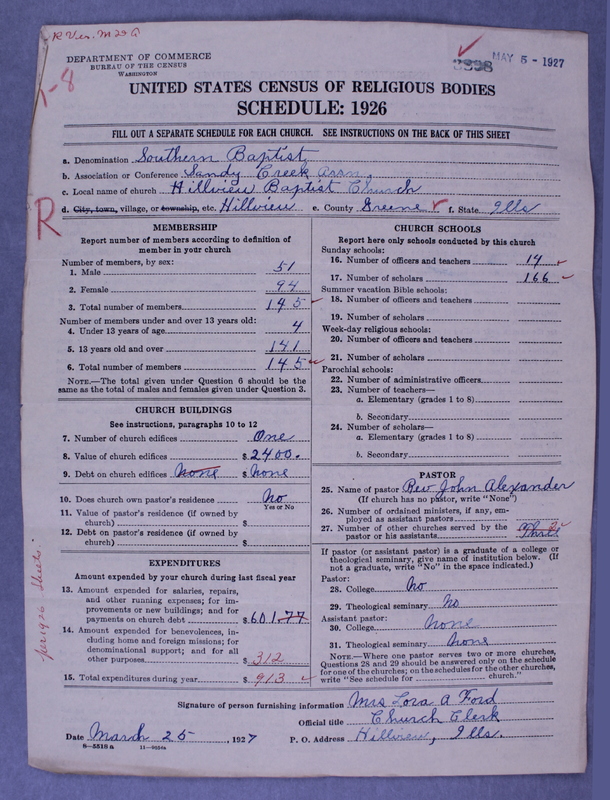 R Ver. M29G
DEPARTMENT OF COMMERCE
BUREAU OF THE CENSUS
WASHINGTON
MAY 5 - 1927
UNITED STATES CENSUS OF RELIGIOUS BODIES
SCHEDULE: 1926
FILL OUT A SEPARATE SCHEDULE FOR EACH CHURCH. SEE INSTRUCTIONS ON THE BACK OF THIS SHEET
a. Denomination Southern Baptist
b. Association or Conference Sandy Creek Assn.
c. Local name of church Hillview Baptist Church
d. City, town, village, or township, etc. Hillview e. County Greene f. State Ills
R
MEMBERSHIP
Report number of members according to definition of
member in your church
Number of members, by sex:
1. Male 51
2. Female 94
3. Total number of members 145
Number of members under and over 13 years old:
4. Under 13 years of age 4
5. 13 years old and over 141
6. Total number of members 145
NOTE.—The total given under Question 6 should be the
same as the total of males and females given under Question 3.
CHURCH BUILDINGS
See instructions, paragraphs 10 to 12
7. Number of church edifices One
8. Value of church edifices $2400.
9. Debt on church edifices None $ None
10. Does church own pastor's residence No
Yes or No
11. Value of pastor's residence (if owned by
church) $
12. Debt on pastor's residence (if owned by
church) $
EXPENDITURES
Amount expended by your church during last fiscal year
13. Amount expended for salaries, repairs,
and other running expenses; for im-
provements or new buildings; and for
payments on church debt $601.77
14. Amount expended for benevolences, in-
cluding home and foreign missions; for
denominational support; and for all
other purposes $312
15. Total expenditures during year $913
CHURCH SCHOOLS
Report here only schools conducted by this church
Sunday schools:
16. Number of officers and teachers 14
17. Number of scholars 166
Summer vacation Bible schools:
18. Number of officers and teachers
19. Number of scholars
Week-day religious schools:
20. Number of officers and teachers
21. Number of scholars
Parochial schools:
22. Number of administrative officers
23. Number of teachers—
a. Elementary (grades 1 to 8)
b. Secondary
24. Number of scholars—
a. Elementary (grades 1 to 8)
b. Secondary
PASTOR
25. Name of pastor Rev John Alexander
(If church has no pastor, write "None")
26. Number of ordained ministers, if any, em-
ployed as assistant pastors
27. Number of other churches served by the
pastor or his assistants
If pastor (or assistant pastor) is a graduate of a college or
theological seminary, give name of institution below. (If
not a graduate, write "No" in the space indicated.)
Pastor:
28. College No
29. Theological seminary No
Assistant pastor:
30. College None
31. Theological seminary None
NOTE.—Where one pastor serves two or more churches,
Questions 28 and 29 should be answered only on the schedule
for one of the churches; on the schedules for the other churches,
write "See schedule for church."
per 1926 Sheets.
Signature of person furnishing information Mrs Lora A Ford
Official title Church Clerk
Date March 25, 1927 P. O. Address Hillview, Ills.
8—5518 a